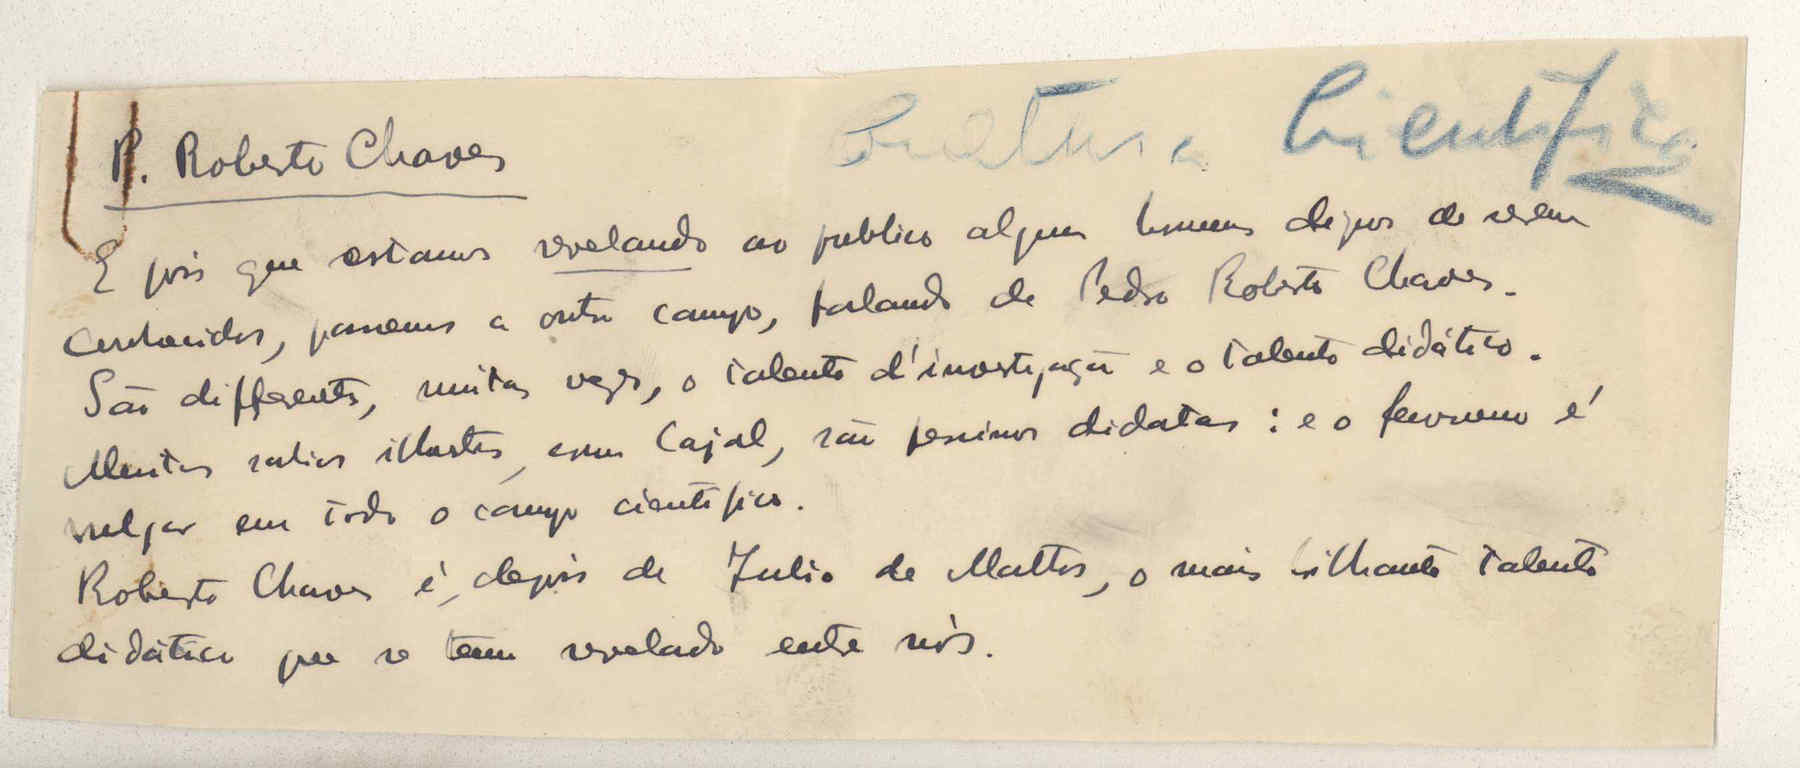 Cultura Cientifica
P. Roberto Chaves
E pois que estamos revelando ao publico alguns homens depois de serem
conhecidos, passemos a outro campo, falando de Pedro Roberto Chaves.
São differentes, muitas vezes, o talento d'investigação e o talento didático.
Muitos sabios illustres, como Cajal, são pessimos didatas: e o fenomeno é
vulgar em todo o campo cientifico.
Roberto Chaves é, depois de Julio de Mattos, o mais brilhante talento
didático que se tem revelado entre nós.